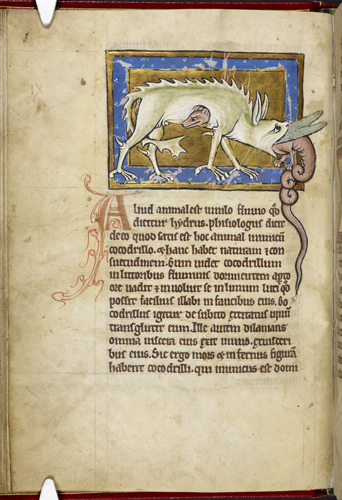 Aliud animal est in nilo flumine q̄d
dicitur hydrus. phisiologus dicit
de eo quod satis est hoc animal inimicū
cocodrillo. ⁊ hanc habet naturam ⁊ con
suetudinem. Cum uidet cocodrillum
in littoribus fluminis dormientem apto
ore uadit ⁊ inuoluit se in lutum luti q̊
possit facilius illabi in faucibus eius. Co
codrillus igitur de subito excitatus uiuū
transglutit eum. Ille autem dilanians
omnia uiscera eius exit uiuus
bus eius. Sic ergo mors ⁊ infernus figurā
habent cocodrilli. qui inimicus est domi